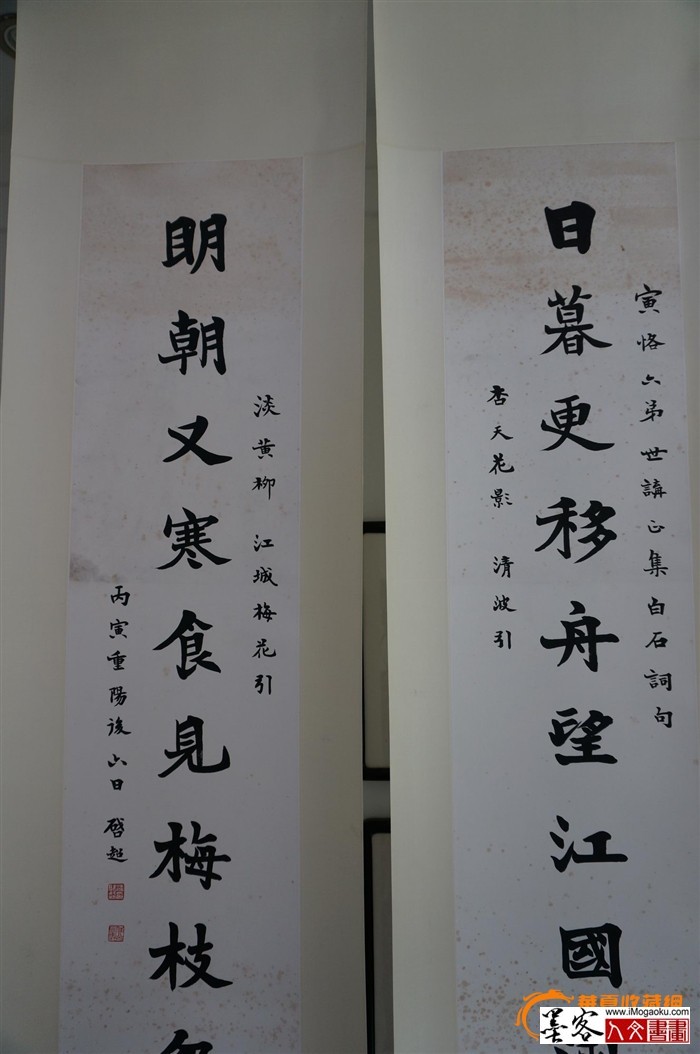 寅恪六弟世講正集白石詞句
日暮更移舟望江國
杏天花影 清波引
淡黃柳 江城梅花引
明朝又寒食見梅枝
丙寅重陽後六日 啓超
華夏收藏網
www.iMogaoku.com
墨客人文書畫